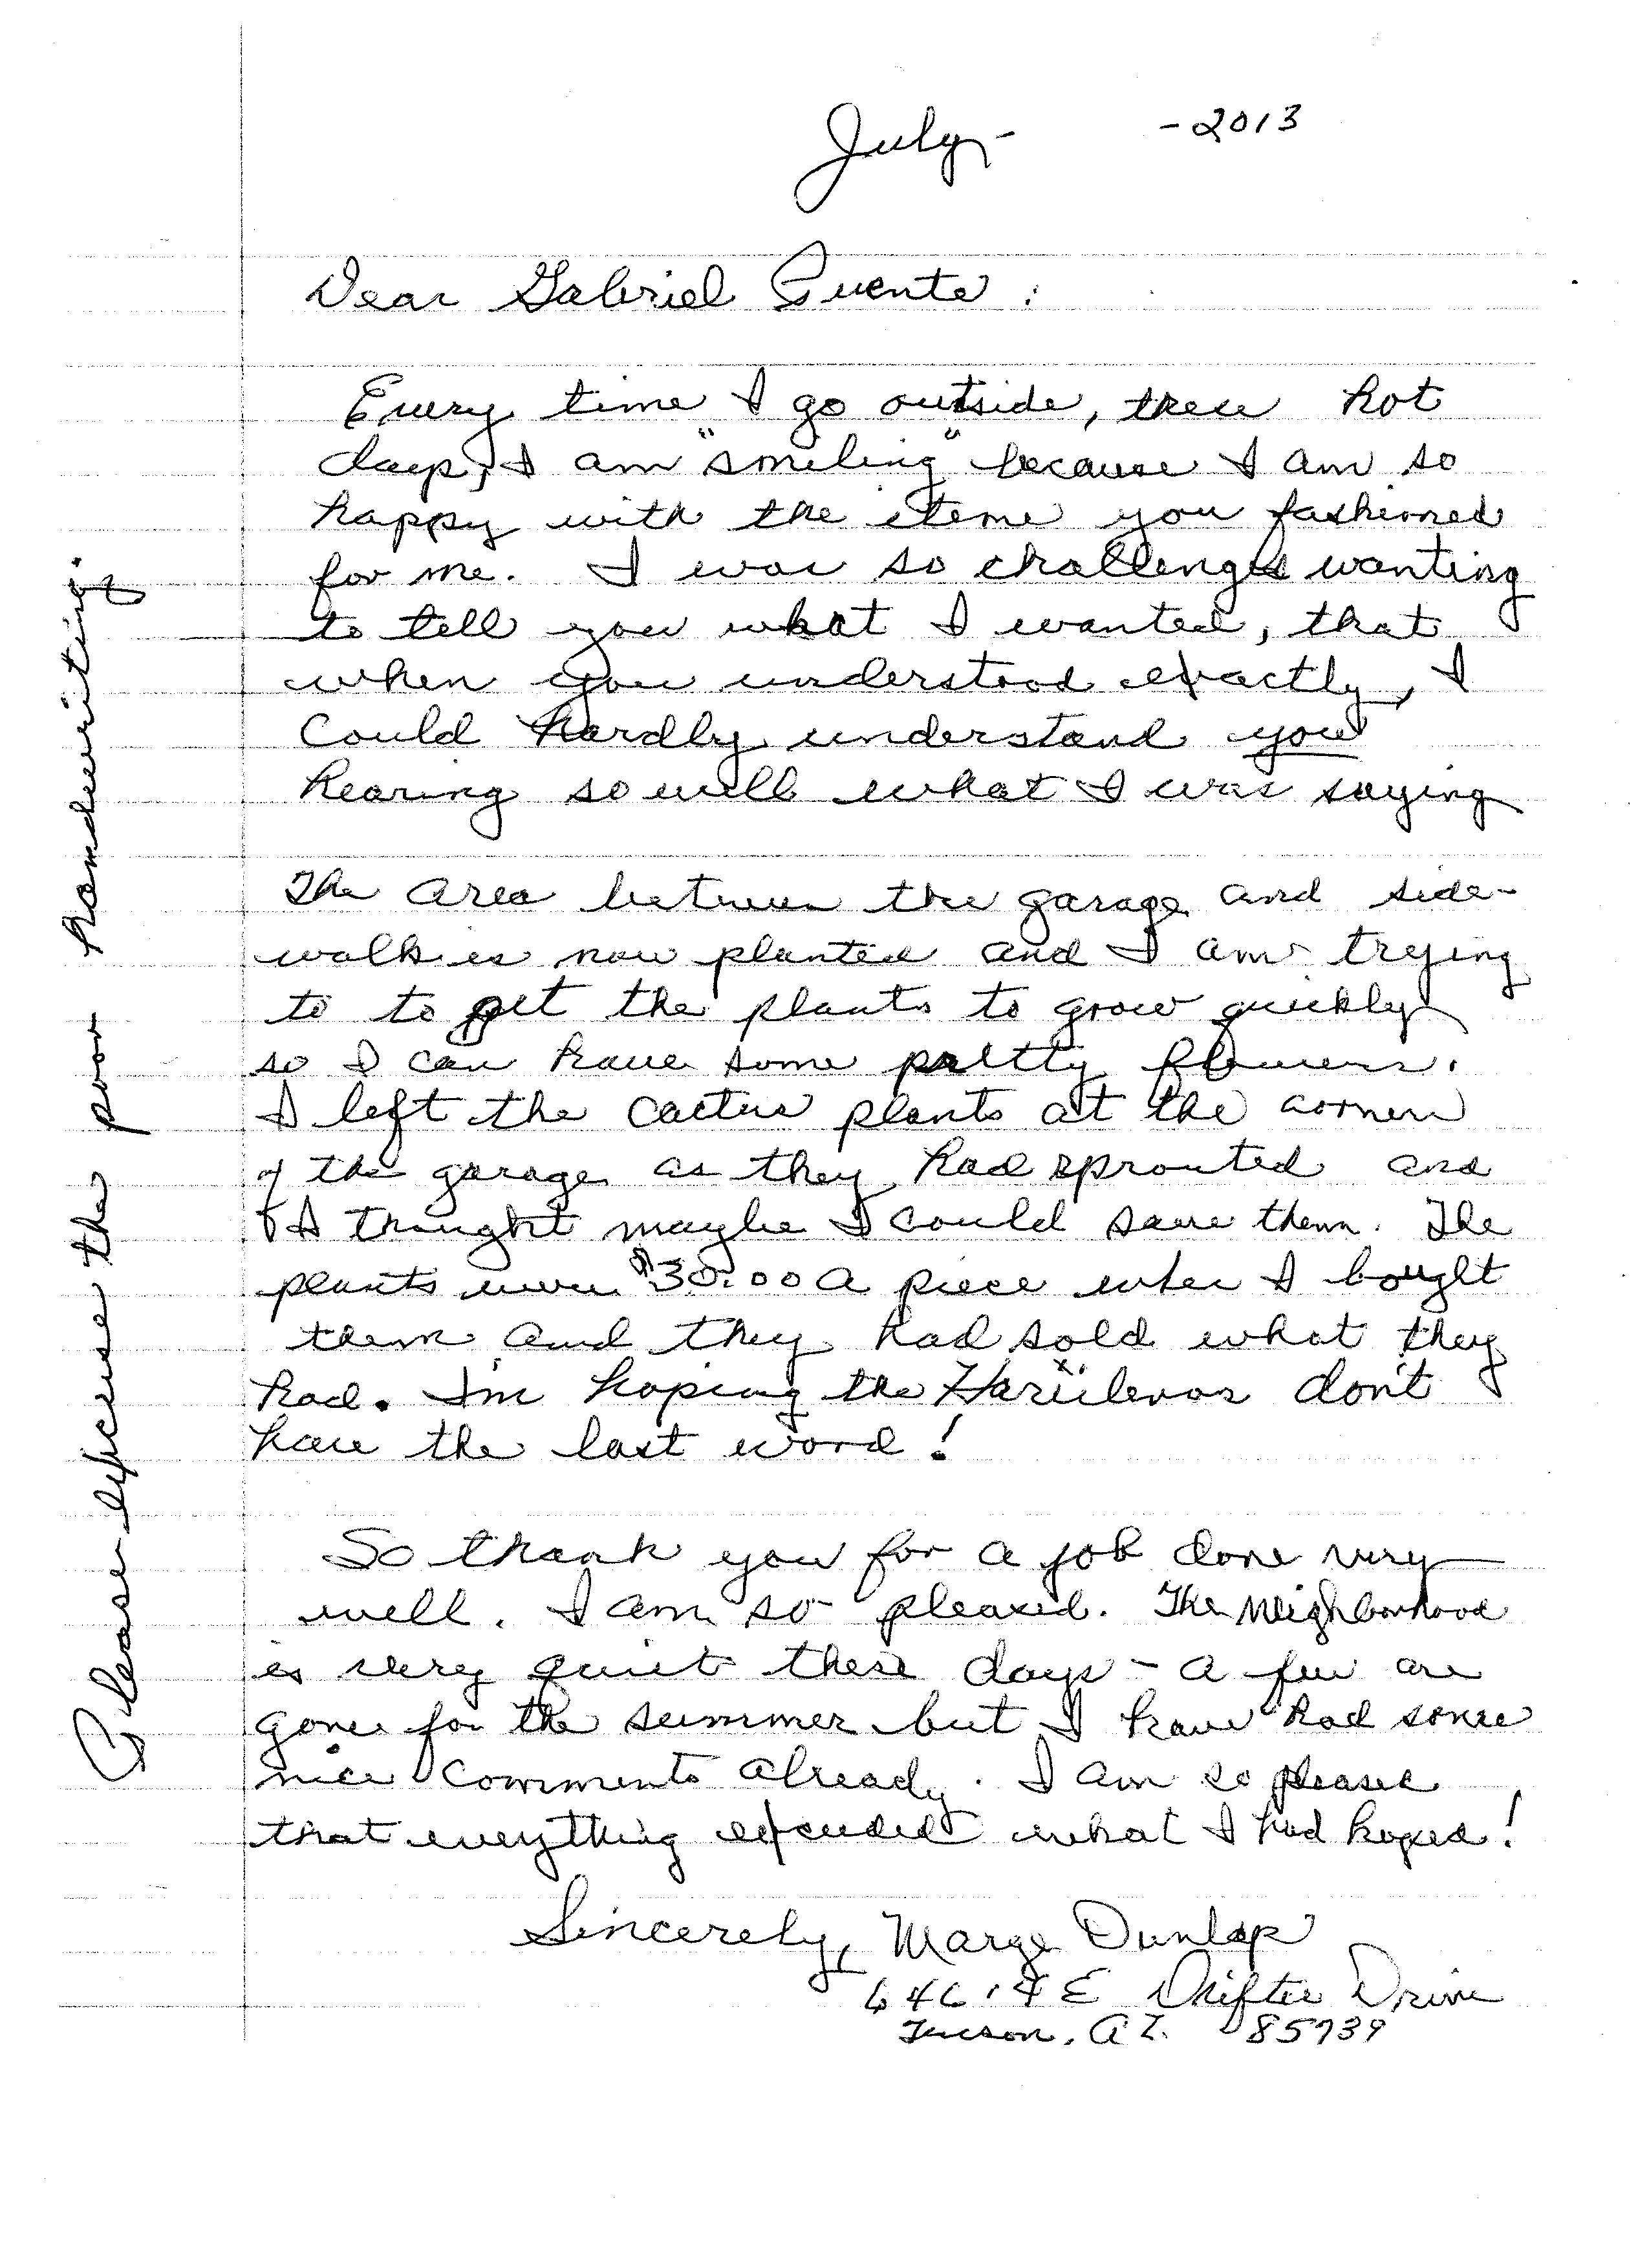 July - - 2013
Dear Gabriel Puente :
Every time I go outside, these hot
days, I am "smiling" because I am so
happy with the items you fashioned
for me. I was so challenged wanting
to tell you what I wanted, that
when you understood exactly, I
could hardly understand you
hearing so well what I was saying
The area between the garage and side-
walk is now planted and I am trying
to to get the plants to grow quickly
so I can have some pretty flowers.
I left the cactus plants at the corner
of the garage as they had sprouted and
I thought maybe I could save them. The
plants were $30.00 a piece when I bought
them and they had sold what they
had. I'm hoping the don't
have the last word!
So thank you for a job done very
well. I am so pleased. The Neighborhood
is very quiet these days - a few are
gone for the summer but I have had some
nice comments already. I am so pleased
that everything exceeded what I had hoped!
Sincerely, Marge Dunlap
E Drifter Drive
Tucson, AZ. 85739
Please excuse the poor handwriting.